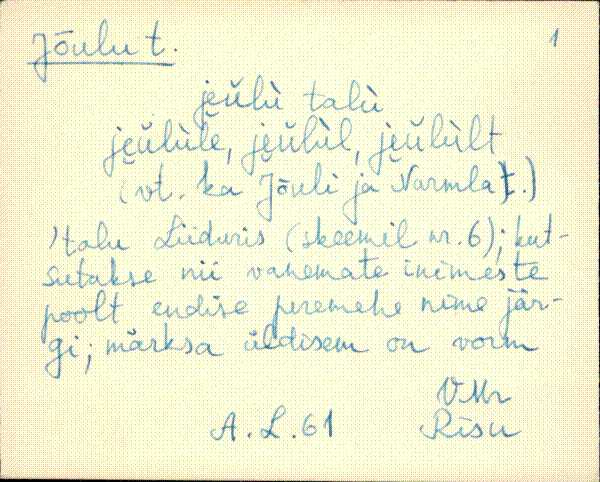 Jõulu t. 1
jeŭlù talù
jeŭlùle, jeŭlùl, jeŭlùlt
(vt. ka Jõuli ja Narmla t.)
'talu Liiduris (skeemil nr. 6); kut-
sutakse nii vanemate inimeste
poolt endise peremehe nime jär-
gi; märksa üldisem on vorm
VMr
A.L.61 Risu